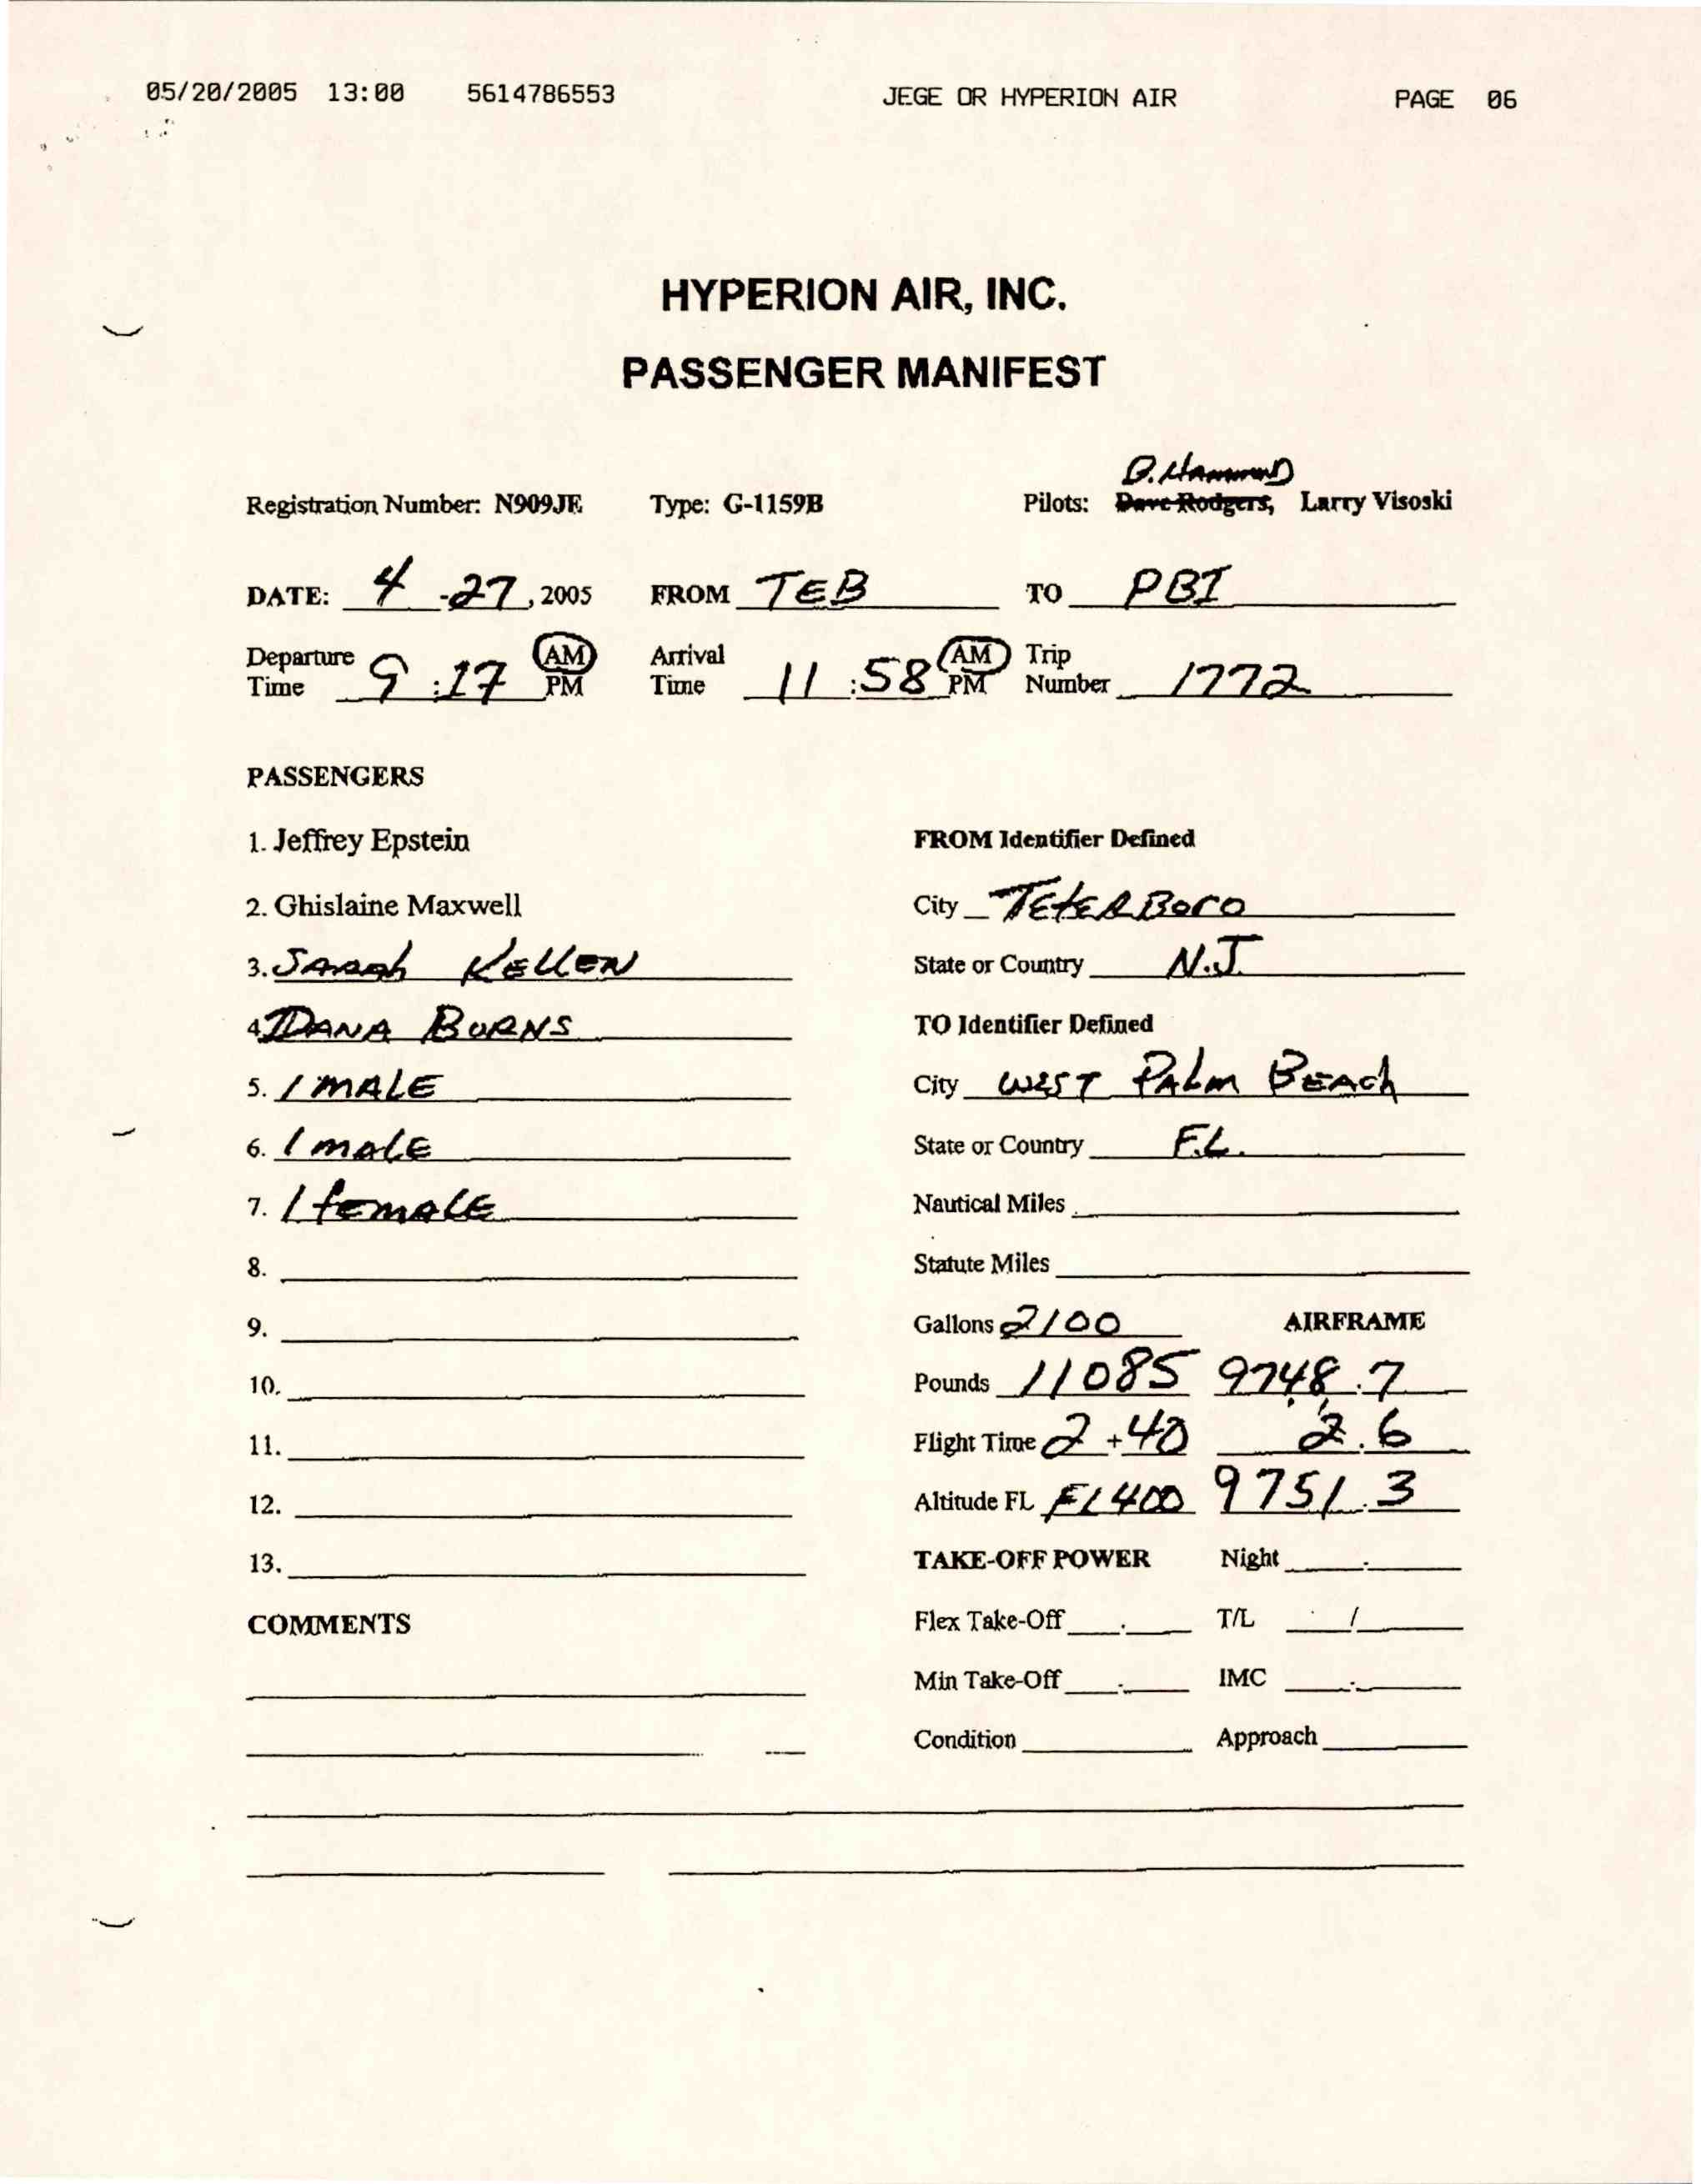 05/20/2005 13:00 5614786553 JEGE OR HYPERION AIR PAGE 06
HYPERION AIR, INC.
PASSENGER MANIFEST
B. Hammond
Registration Number: N909JE Type: G-1159B Pilots: Dave Rodgers, Larry Visoski
DATE: 4 -27, 2005 FROM TEB TO PBI
Departure Time 9:17 AM PM Arrival Time 11:58 AM PM Trip Number 1772
PASSENGERS
1. Jeffrey Epstein
2. Ghislaine Maxwell
3. Sarah Kellen
4. Dana Burns
5. 1 MALE
6. 1 male
7. 1 female
8.
9.
10.
11.
12.
13.
COMMENTS
FROM Identifier Defined
City TeterBoro
State or Country N.J.
TO Identifier Defined
City West Palm Beach
State or Country F.L.
Nautical Miles
Statute Miles
Gallons 2100 AIRFRAME
Pounds 11085 9748.7
Flight Time 2+40 2.6
Altitude FL FL400 9751.3
TAKE-OFF POWER Night
Flex Take-Off T/L /
Min Take-Off IMC
Condition Approach